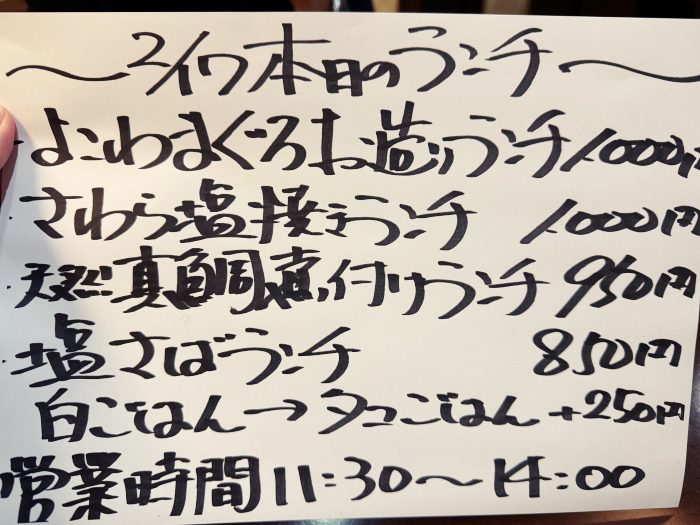 ～2/17本日のランチ～
・よこわまぐろお造りランチ 1000円
・さわら塩焼きランチ 1000円
・天然真鯛煮付けランチ 950円
・塩さばランチ 850円
白ごはん→タコごはん +250円
営業時間11:30～14:00